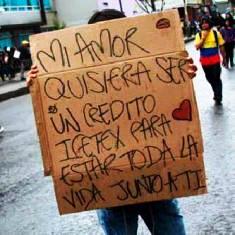 MI AMOR
QUISIERA SER
UN CREDITO
ICETEX PARA
ESTAR TODA LA
VIDA JUNTO A TI